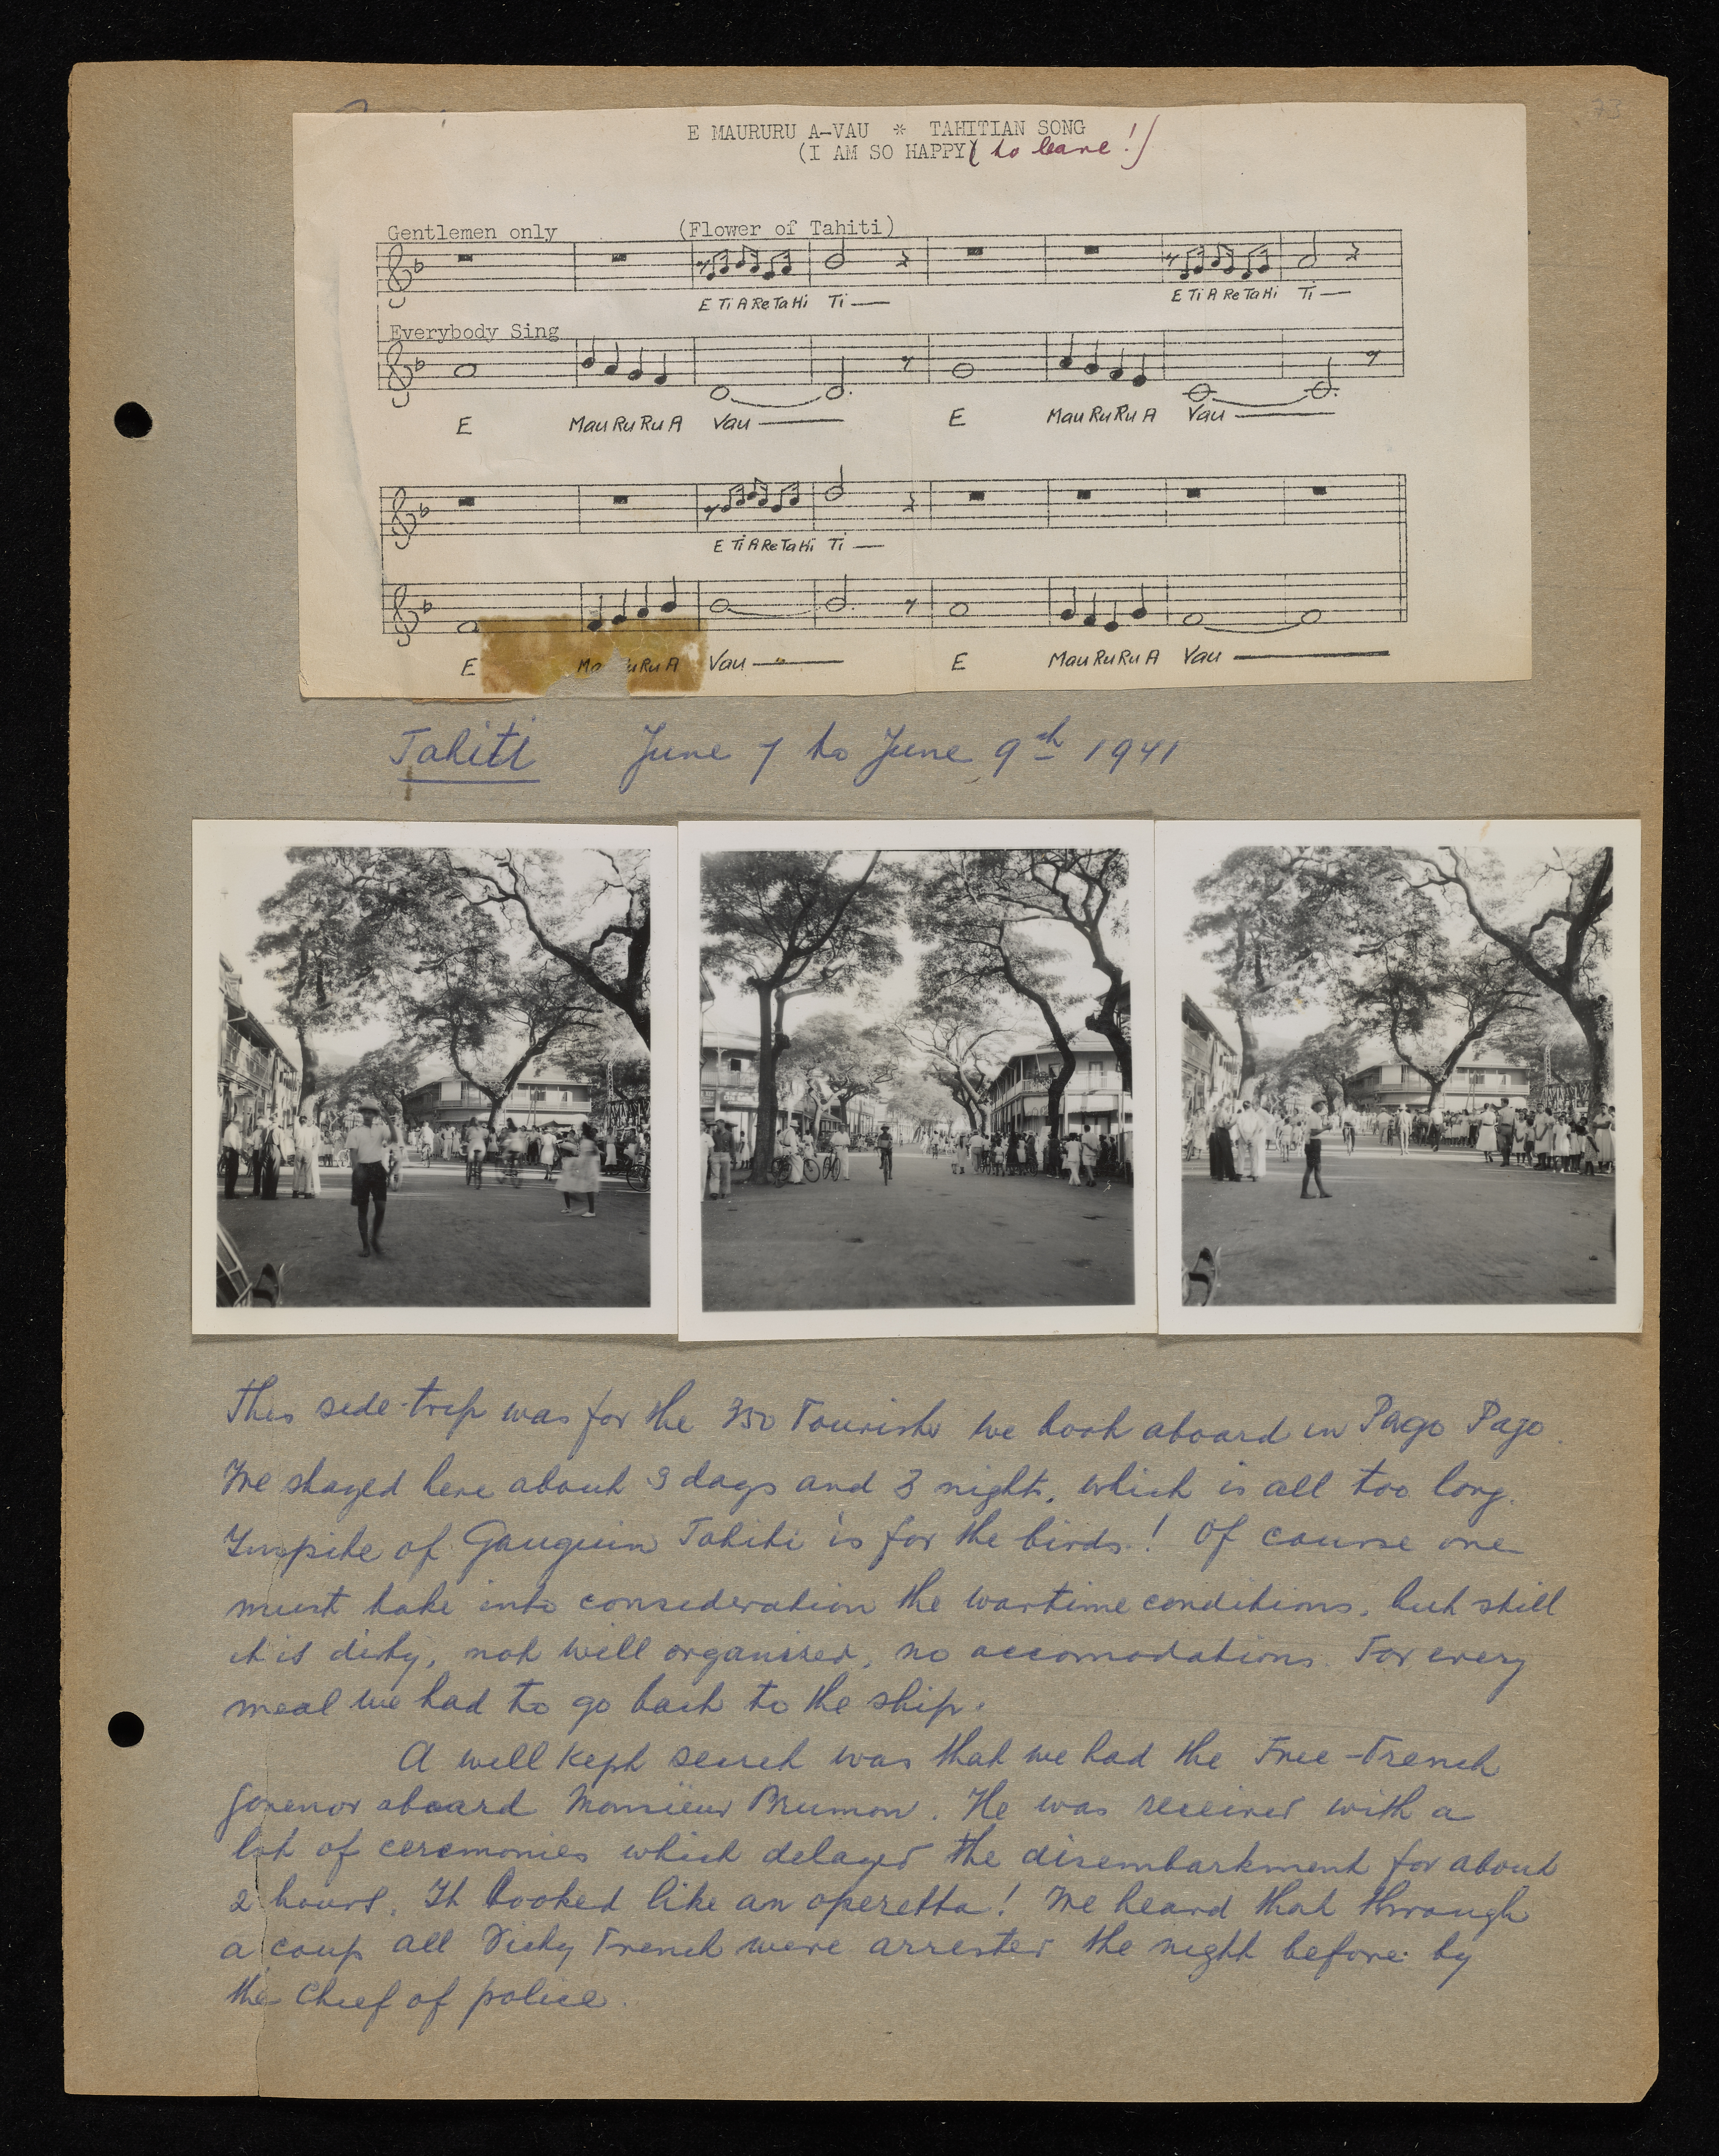 73
E MAURURU A-VAU * TAHITIAN SONG
(I AM SO HAPPY( to leave!)
Gentlemen only (Flower of Tahiti)
E Ti A Re Ta Hi Ti — E Ti A Re Ta Hi Ti —
Everybody Sing
E Mau Ru Ru A Vau — E Mau Ru Ru A Vau —
E Ti A Re Ta Hi Ti —
E Ma uRu A Vau — E Mau Ru Ru A Vau —
Tahiti June 7 to June 9th 1941
This side-trip was for the 350 Tourists we took aboard in Pago Pago.
We stayed here about 3 days and 3 nights, which is all too long.
Inspite of Gauguin Tahiti is for the birds! Of course one
must take into consideration the wartime conditions, but still
it is dirty, not well organized, no accomodations. For every
meal we had to go back to the ship.
A well kept secret was that we had the Free-French
govenor aboard Monsieur Brumon. He was received with a
lot of ceremonies which delayed the disembarkment for about
2 hours. It looked like an operetta! We heard that through
a coup all Vichy French were arrested the night before by
the Chief of police.